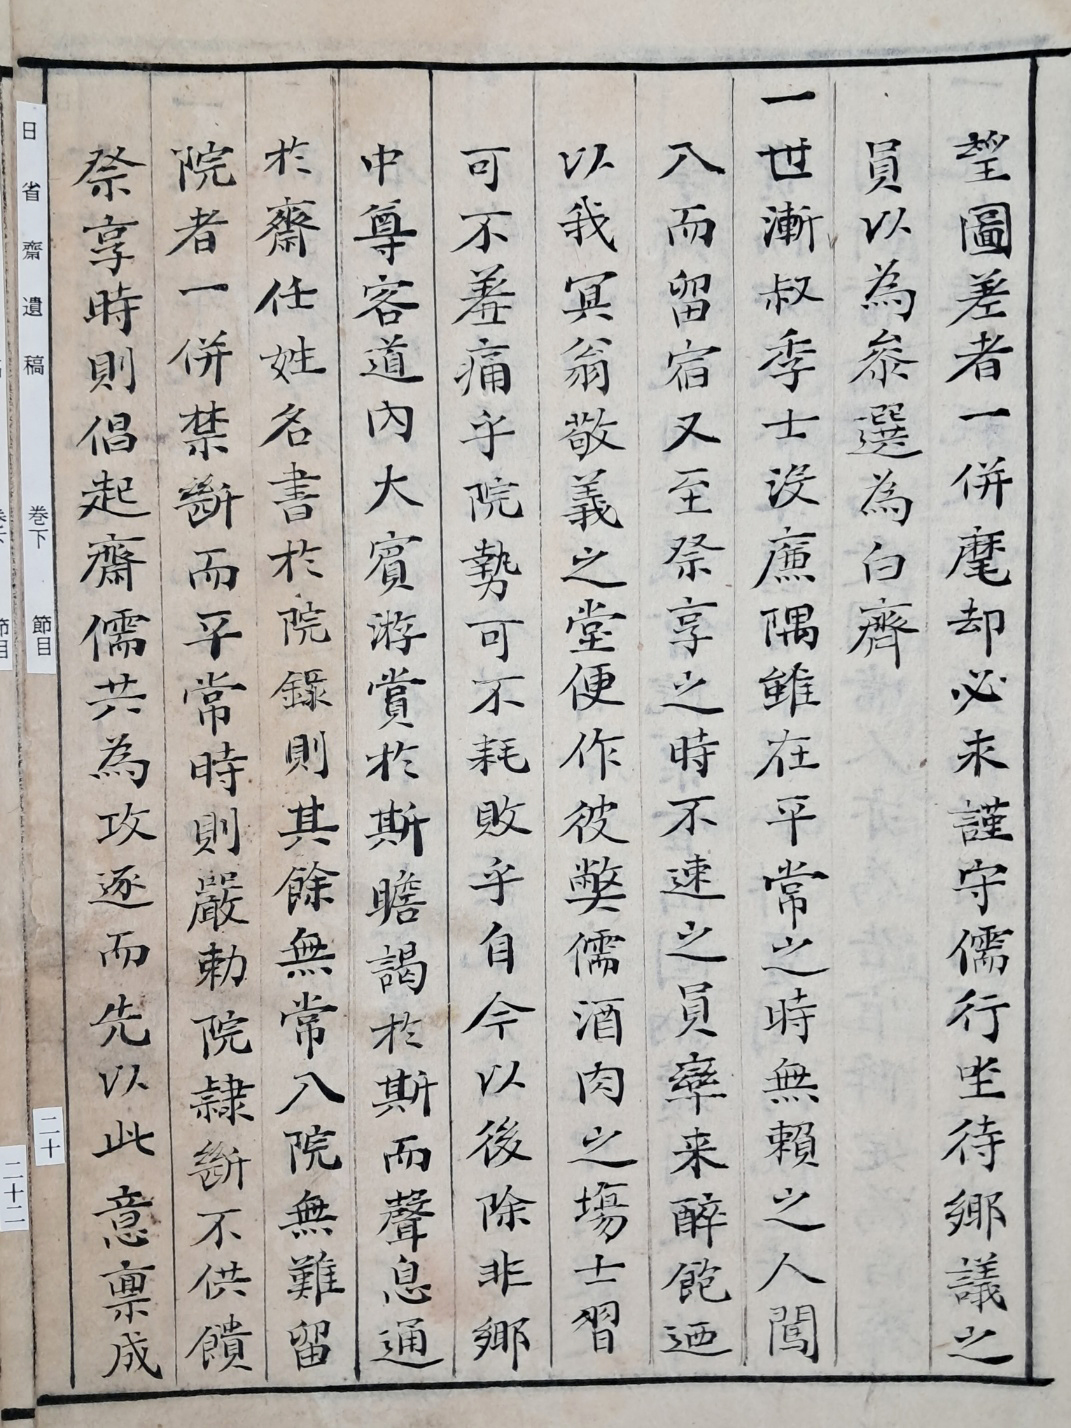 望圖差者一併麾却必来謹守儒行坐待鄉議之
員以為叅選為白齊
一世漸叔季士沒廉隅雖在平常之時無賴之人闖
入而留宿又至祭享之時不速之員率来醉飽迺
以我冥翁敬義之堂便作彼弊儒酒肉之塲士習
可不羞痛乎院勢可不耗敗乎自今以後除非鄉
中尊客道內大賓游賞於斯瞻謁於斯而聲息通
於齋任姓名書於院錄則其餘無常入院無難留
院者一併禁斷而平常時則嚴勅院隷斷不供饋
祭享時則倡起齋儒共為攻逐而先以此意稟成
日省齋遺稿 卷下 節目 二十
節目 二十二